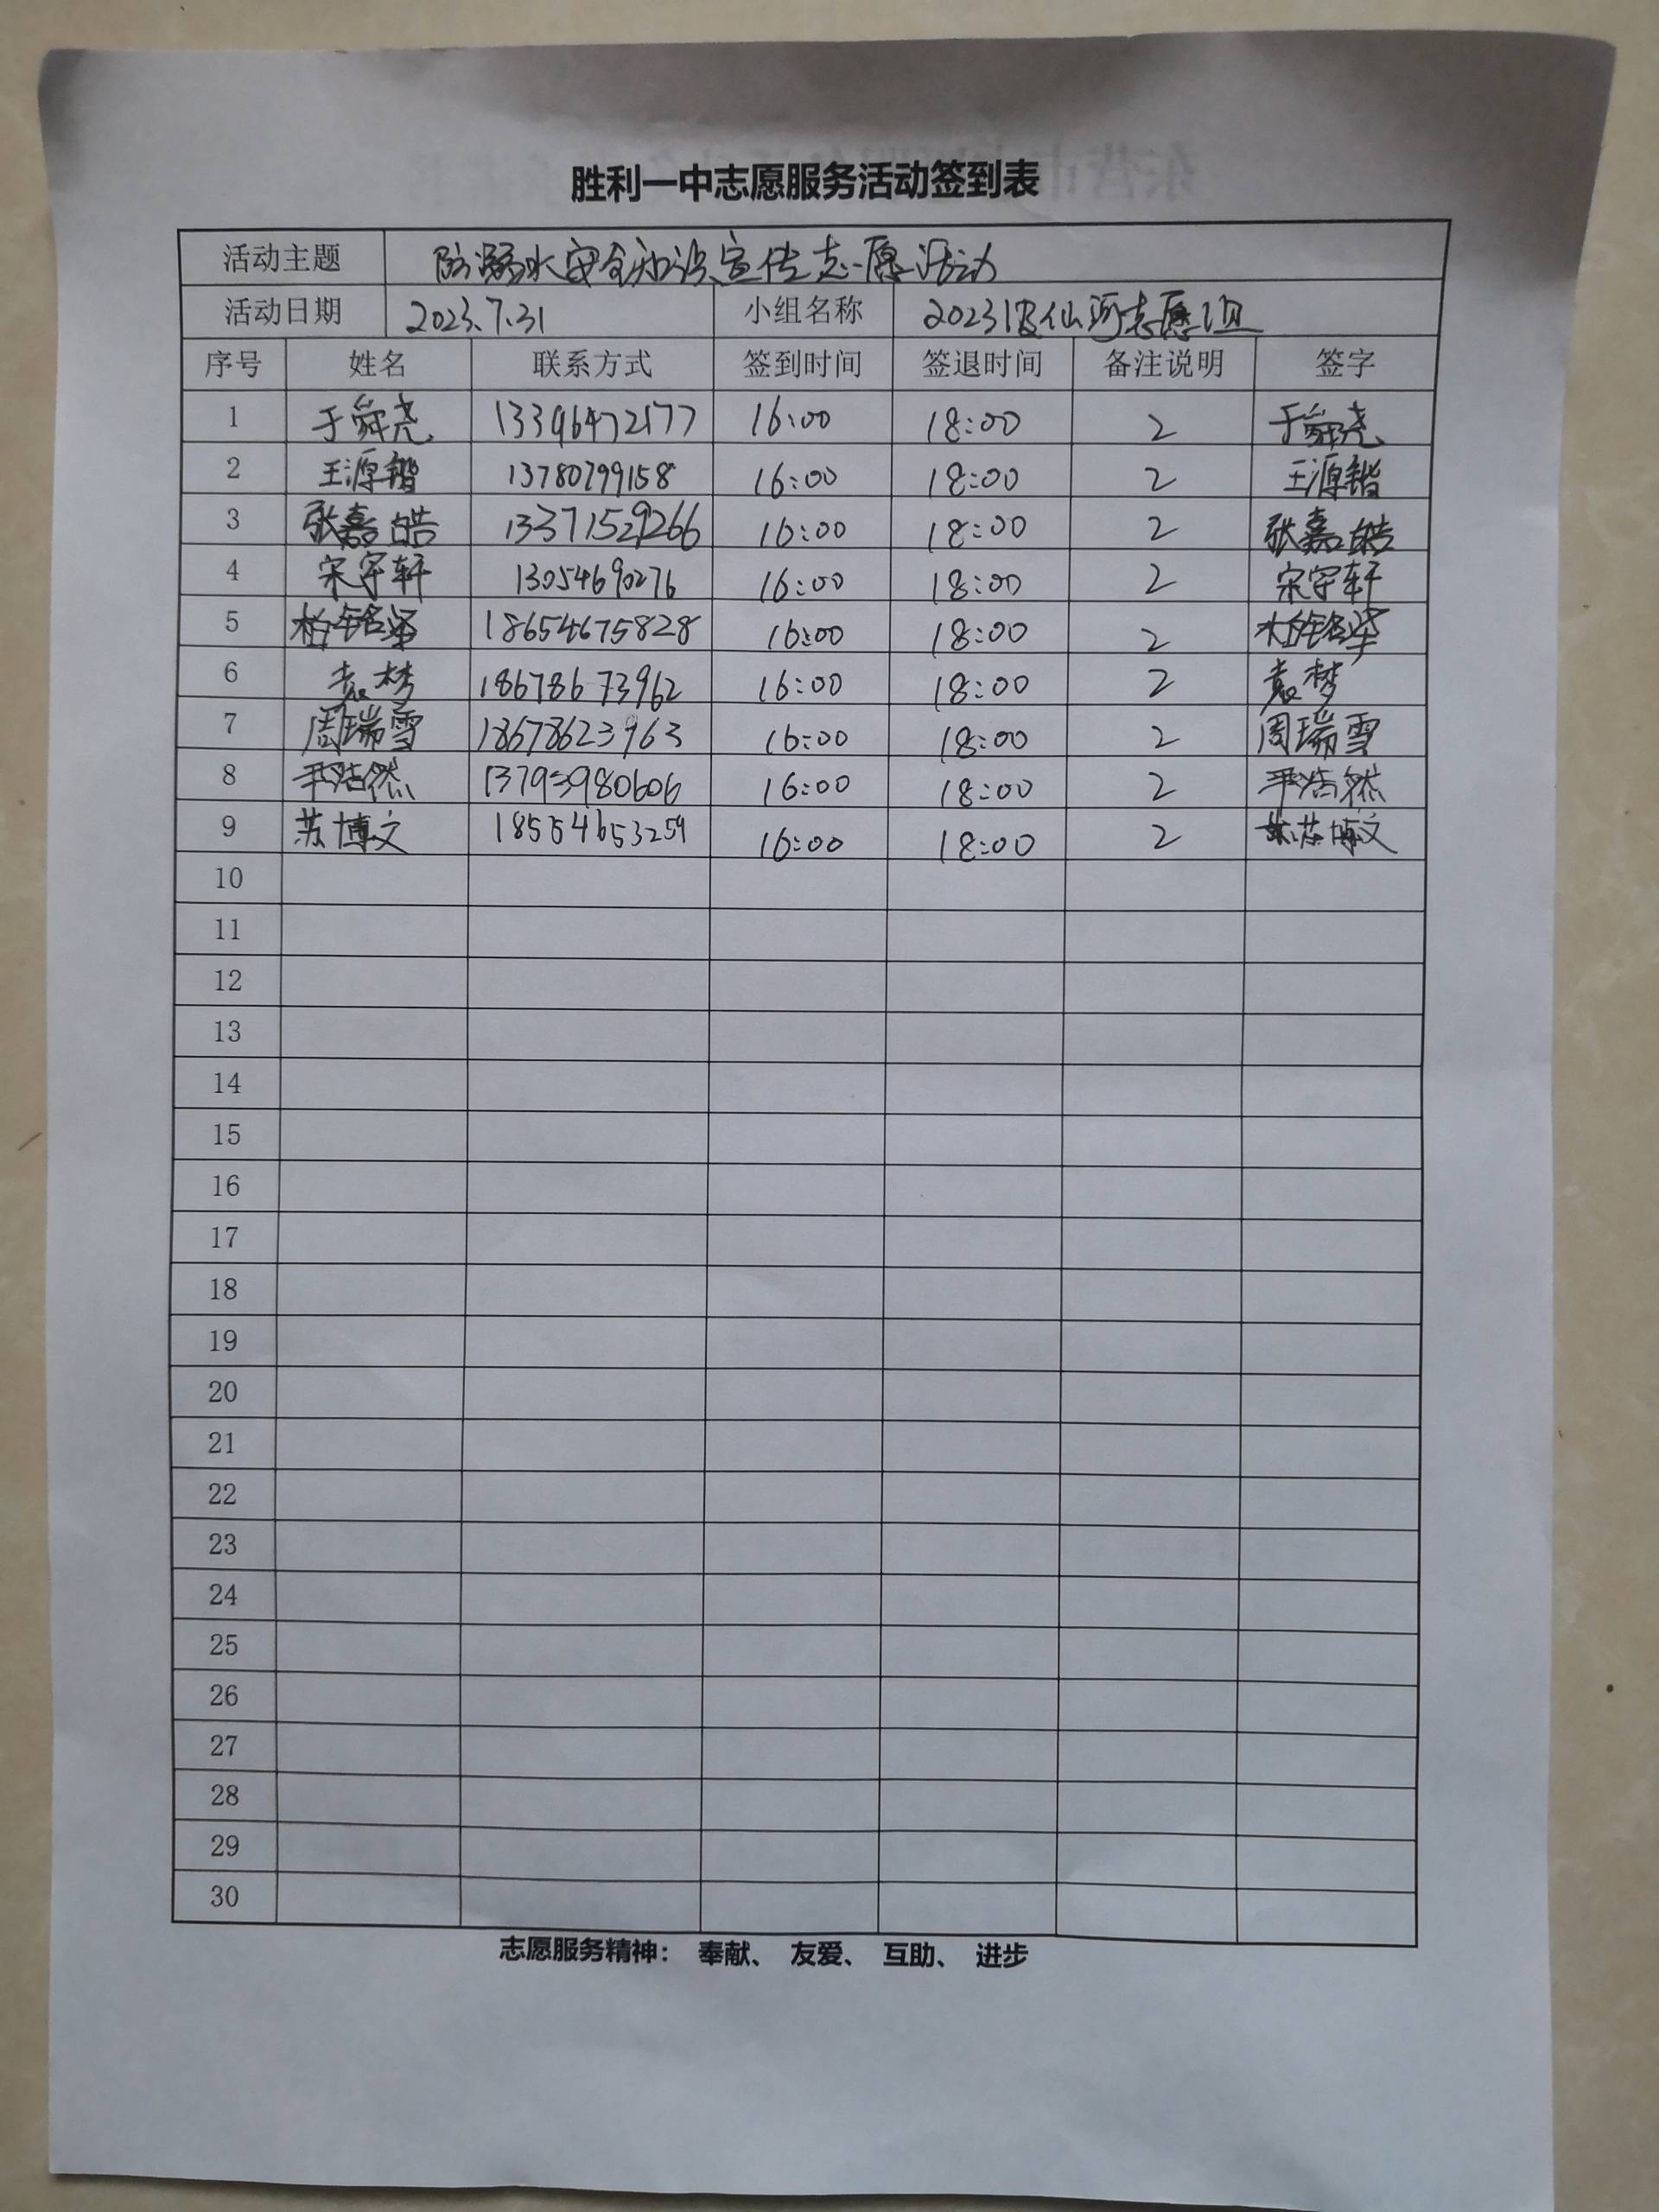 胜利一中志愿服务活动签到表
活动主题 防溺水安全知识宣传志愿活动
活动日期 2023.7.31 小组名称 2023级仙河志愿组
序号 姓名 联系方式 签到时间 签退时间 备注说明 签字
1 于舜尧 13396472177 16:00 18:00 2 于舜尧
2 王源锴 13780799158 16:00 18:00 2 王源锴
3 张嘉皓 13371529266 16:00 18:00 2 张嘉皓
4 宋宇轩 13054690276 16:00 18:00 2 宋宇轩
5 柏铭 18654675828 16:00 18:00 2 柏铭
6 袁梦 18678673962 16:00 18:00 2 袁梦
7 周瑞雪 18678623963 16:00 18:00 2 周瑞雪
8 尹浩然 13793980606 16:00 18:00 2 尹浩然
9 苏博文 18554653259 16:00 18:00 2 苏博文
10
11
12
13
14
15
16
17
18
19
20
21
22
23
24
25
26
27
28
29
30
志愿服务精神： 奉献、 友爱、 互助、 进步